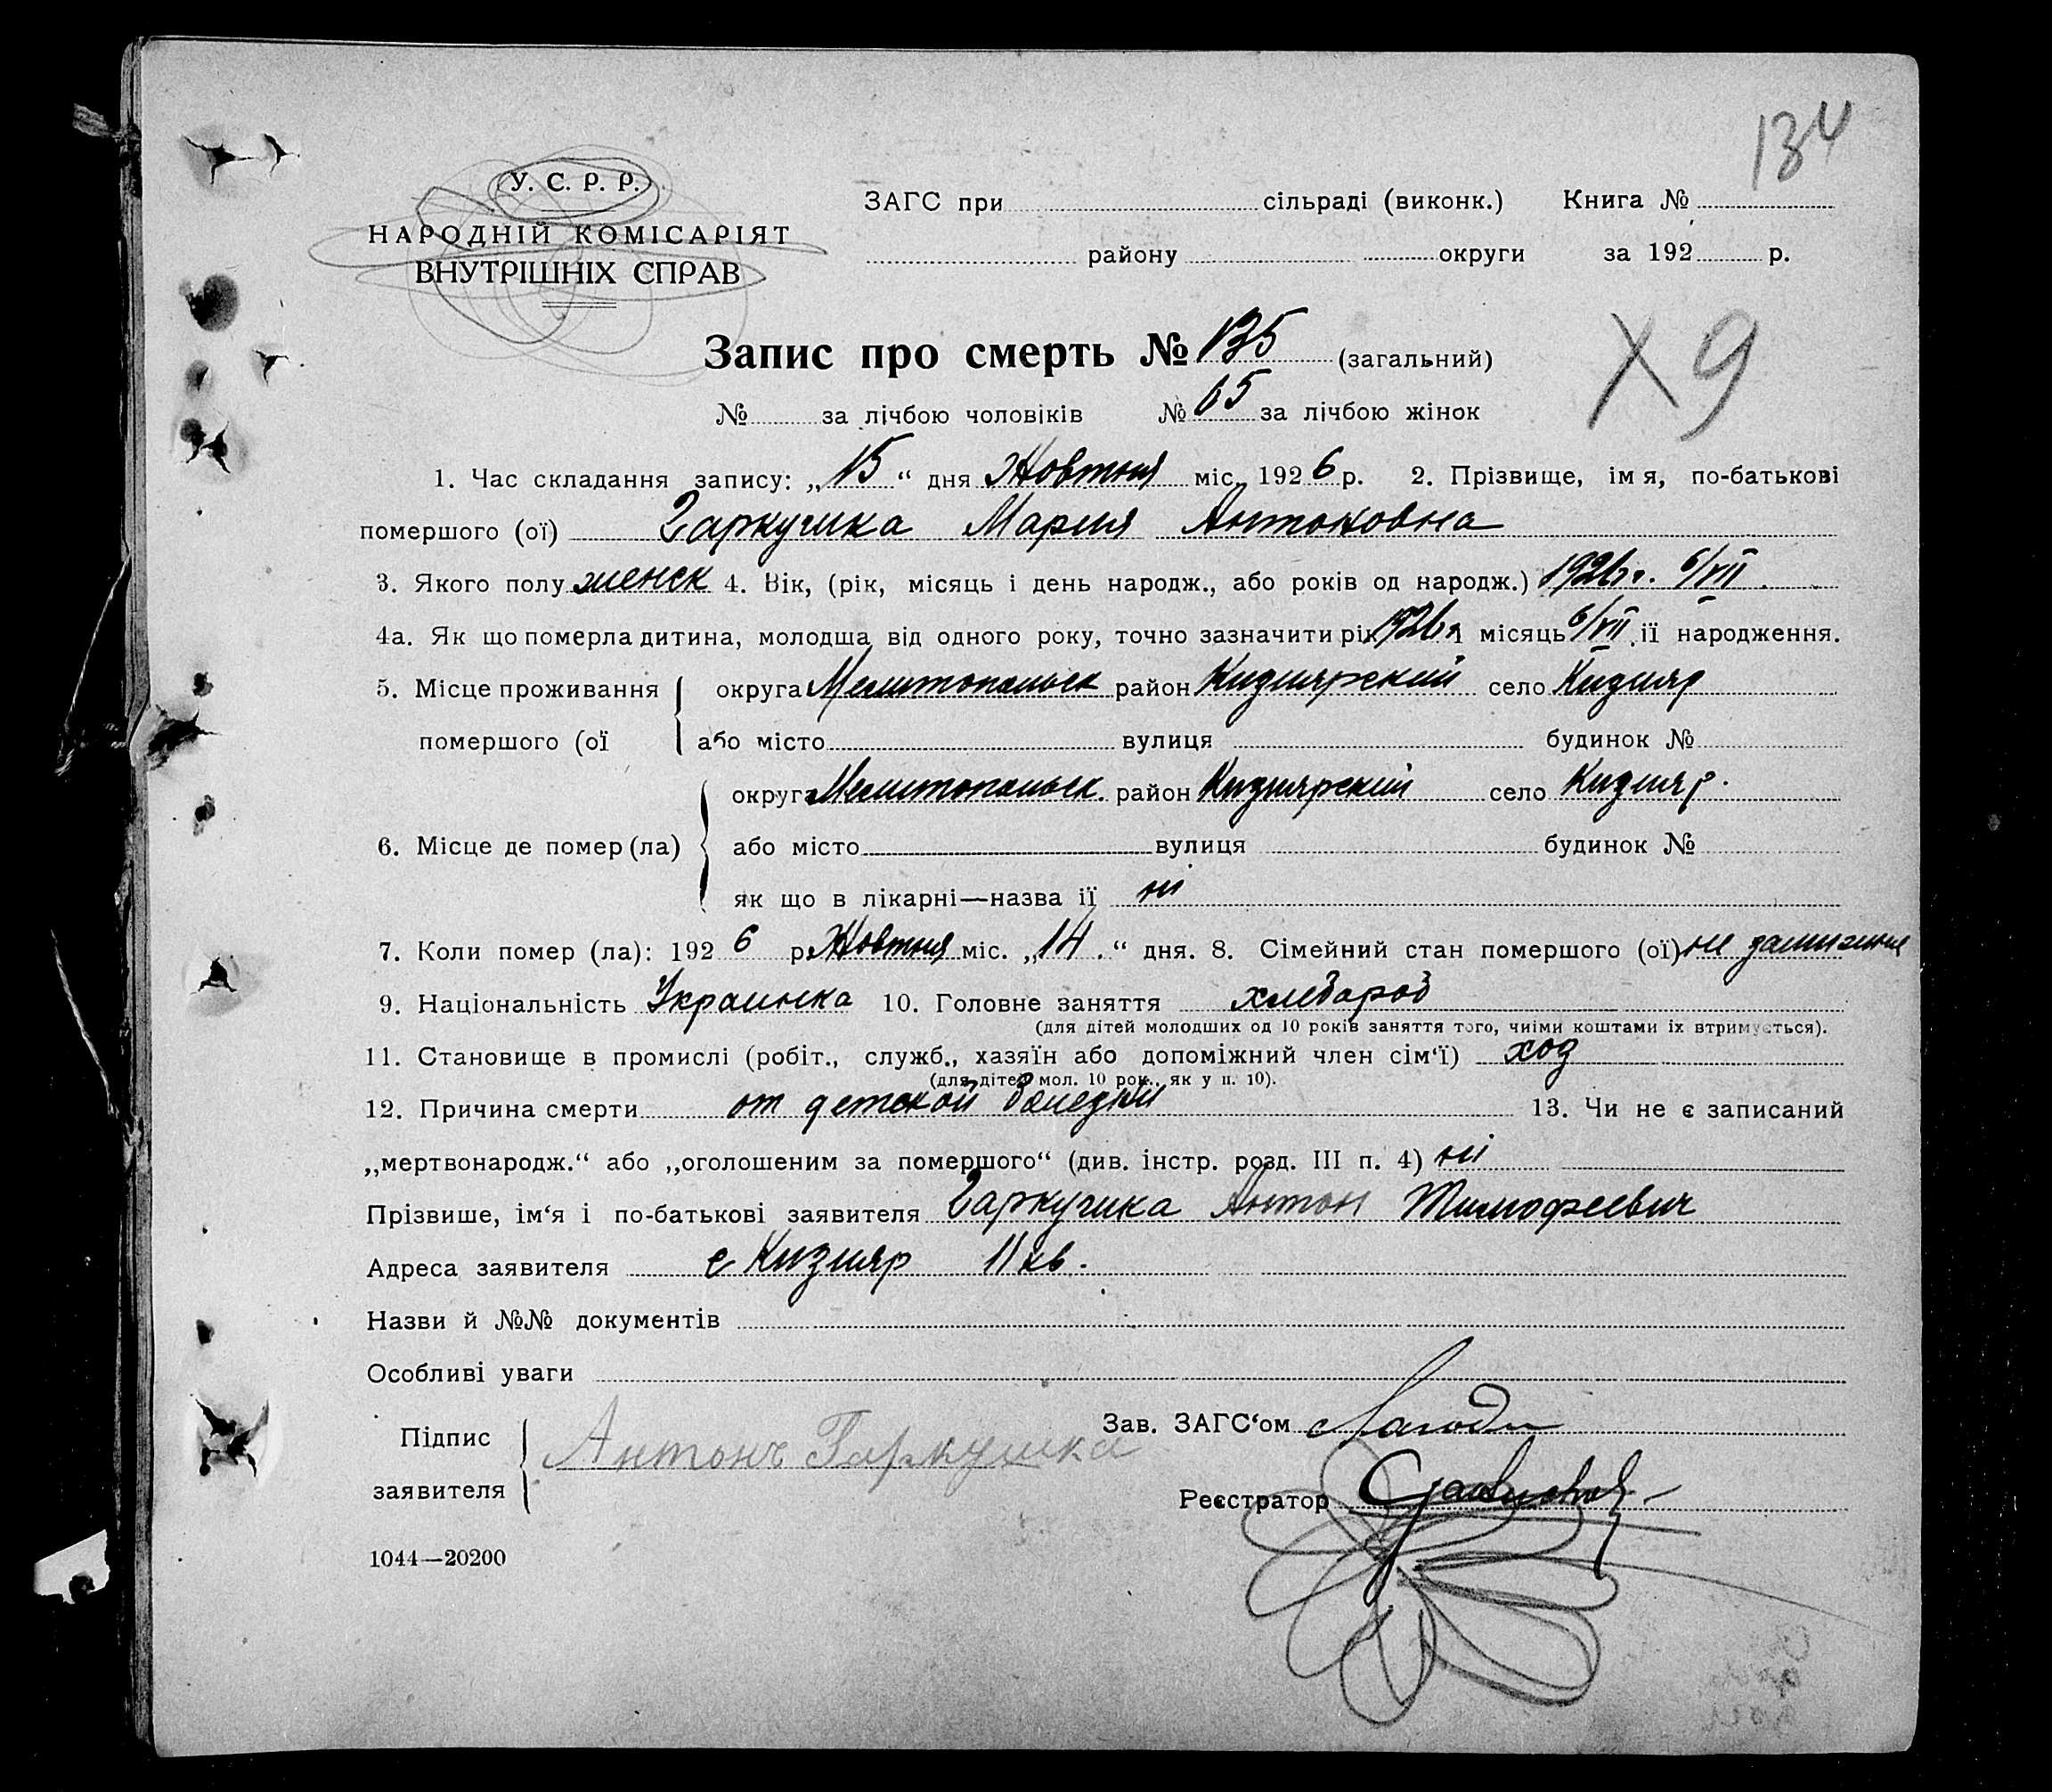 134
У. С. Р. Р.
НАРОДНІЙ КОМІСАРІЯТ
ВНУТРІШНІХ СПРАВ
ЗАГС при сільраді (виконк.) Книга №
району округи за 192 р.
Запис про смерть № 135 (загальний)
Х 9
№ за лічбою чоловіків № 65 за лічбою жінок
1. Час складання запису: „15“ дня Жовтня міс. 1926 р. 2. Прізвище, імя, по-батькові
помершого (ої) Гаркушка Мария Антоновна
3. Якого полу женск 4. Вік, (рік, місяць і день народж., або років од народж.) 1926 г. 6/VII
4а. Як що померла дитина, молодша від одного року, точно зазначити рік 1926 і місяць 6/VII її народження.
5. Місце проживання округа Мелитопольск район Кизиярский село Кизияр
помершого (ої або місто вулиця будинок №
округа Мелитопольск. район Кизиярский село Кизияр.
6. Місце де помер (ла) або місто вулиця будинок №
як що в лікарні—назва її ні
7. Коли помер (ла): 1926 р. Жовтня міс. „14.“ дня. 8. Сімейний стан помершого (ої) не
9. Національність Украинка 10. Головне заняття хлебароб
(для дітей молодших од 10 років заняття того, чиїми коштами їх втримується).
11. Становище в промислі (робіт., служб., хазяїн або допоміжний член сім‘ї) хоз
(для дітей мол. 10 рок., як у п. 10).
12. Причина смерти от детской болезни 13. Чи не є записаний
„мертвонародж.“ або „оголошеним за помершого“ (див. інстр. розд. III п. 4) ні
Прізвише, ім‘я і по-батькові заявителя Гаркушка Антон Тимофеевич
Адреса заявителя с Кизияр 11 кв.
Назви й №№ документів
Особливі уваги
Підпис Зав. ЗАГС‘ом
Антонъ Гаркушка
заявителя Реєстратор
1044—20200